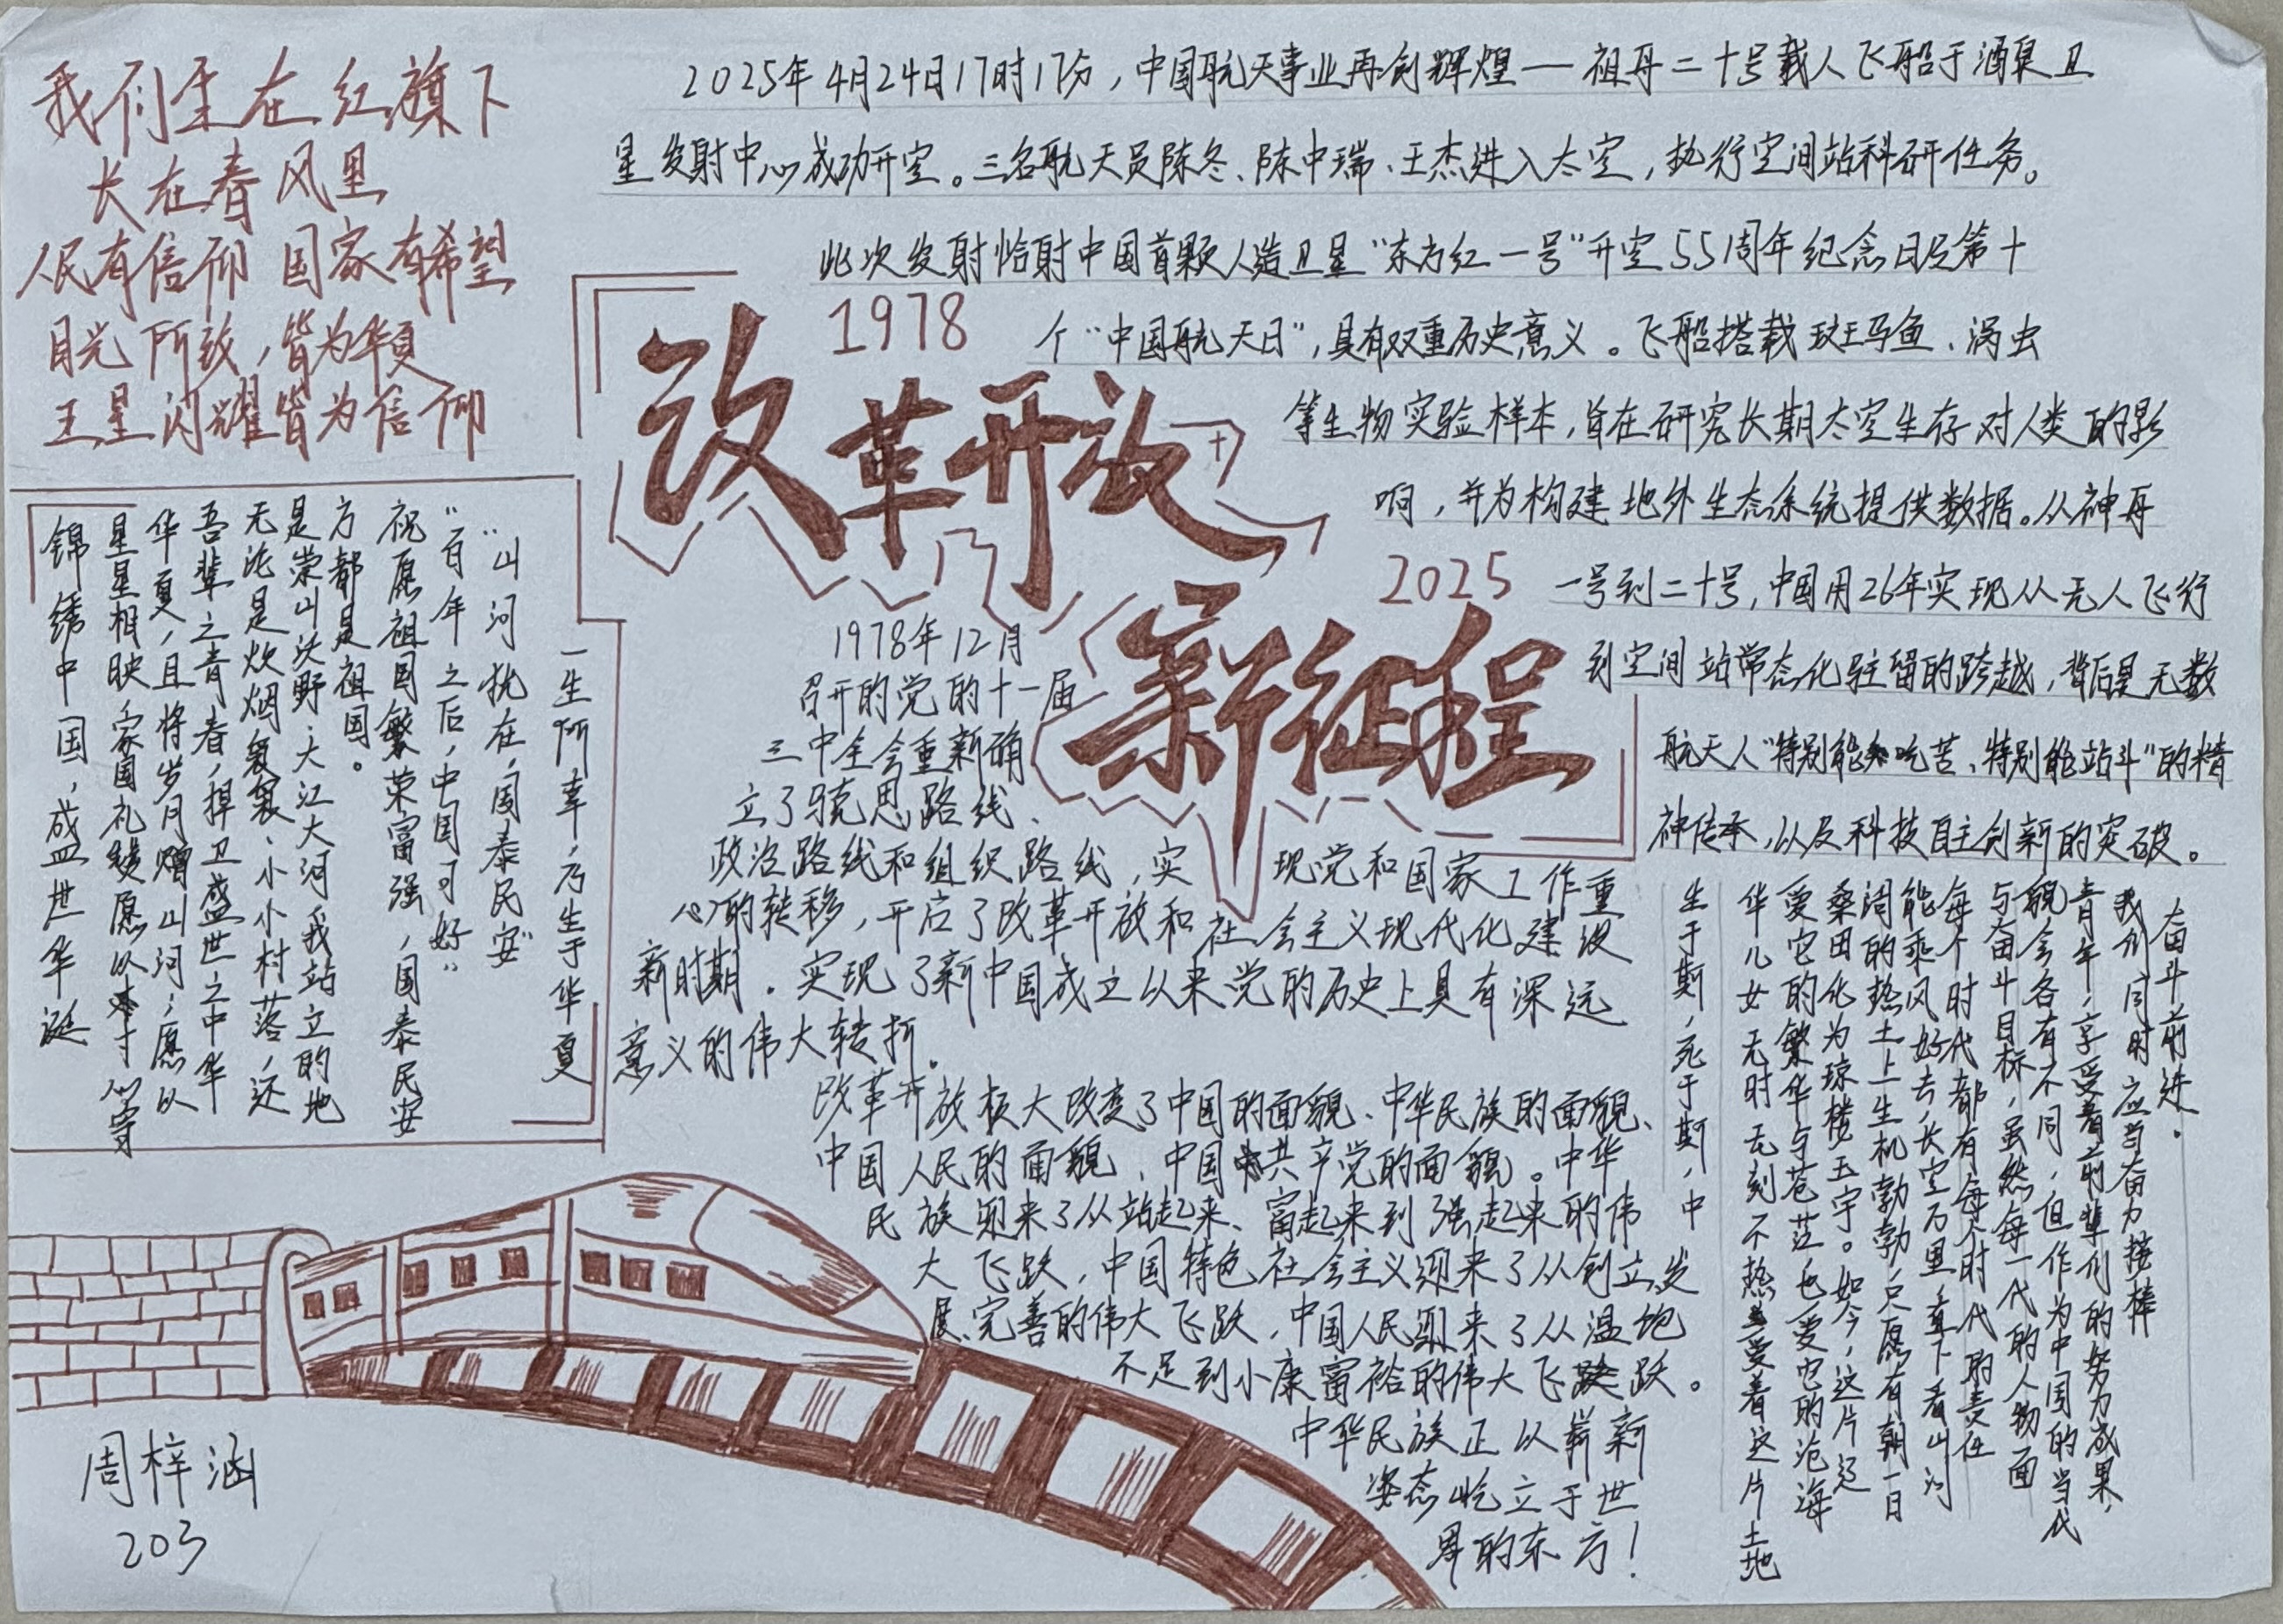 我们生在红旗下
长在春风里
人民有信仰 国家有希望
目光所致，皆为华夏
五星闪耀皆为信仰
2025年4月24日17时17分，中国航天事业再创辉煌—祖舟二十号载人飞船于酒泉卫
星发射中心成功开空。三名航天员陈冬、陈中瑞、王杰进入太空，执行空间站科研任务。
此次发射恰射中国首颗人造卫星“东方红一号”升空55周年纪念日及第十
个“中国航天日”，具有双重历史意义。飞船搭载斑马鱼、涡虫
等生物实验样本，旨在研究长期太空生存对人类的影
响，并为构建地外生态系统提供数据。从神舟
一号到二十号，中国用26年实现从无人飞行
到空间站常态化驻留的跨越，背后是无数
航天人“特别能吃苦、特别能站斗”的精
神传承，以及科技自主创新的突破。
1978
改革开放
2025
新征程
锦绣中国，盛世华诞
星星相映家国礼赞愿以寸心寄
华夏，且将岁月赠山河；愿以
吾辈之青春，捍卫盛世之中华
无论是炊烟袅袅、小小村落，还
是崇山沃野、大江大河我站立的地
方都是祖国。
祝愿祖国繁荣富强，国泰民安
“百年之后，中国可好”
“山河犹在，国泰民安”
一生所幸，乃生于华夏
1978年12月
召开的党的十一届
三中全会重新确
立了马克思路线、
政治路线和组织路线，实现党和国家工作重
心的转移，开启了改革开放和社会主义现代化建设
新时期。实现了新中国成立以来党的历史上具有深远
意义的伟大转折。
改革开放极大改变了中国的面貌、中华民族的面貌、
中国人民的面貌、中国共产党的面貌。中华
民族迎来了从站起来、富起来到强起来的伟
大飞跃，中国特色社会主义迎来了从创立、发
展、完善的伟大飞跃，中国人民迎来了从温饱
不足到小康富裕的伟大飞跃。
中华民族正以崭新
姿态屹立于世
界的东方！
生于斯，死于斯，中
华儿女无时无刻不热爱着这片土地
爱它的繁华与苍茫也爱它的沧海
桑田化为琼楼玉宇。如今，这片辽
阔的热土上一生机勃勃，只愿有朝一日
能乘风好去，长空万里，直下看山河
每个时代都有每个时代的责任
与奋斗目标，虽然每一代的人物面
貌会各有不同，但作为中国的当代
青年，享受着前辈们的努力成果，
我们同时应当奋力接棒
奋斗前进。
周梓涵
203